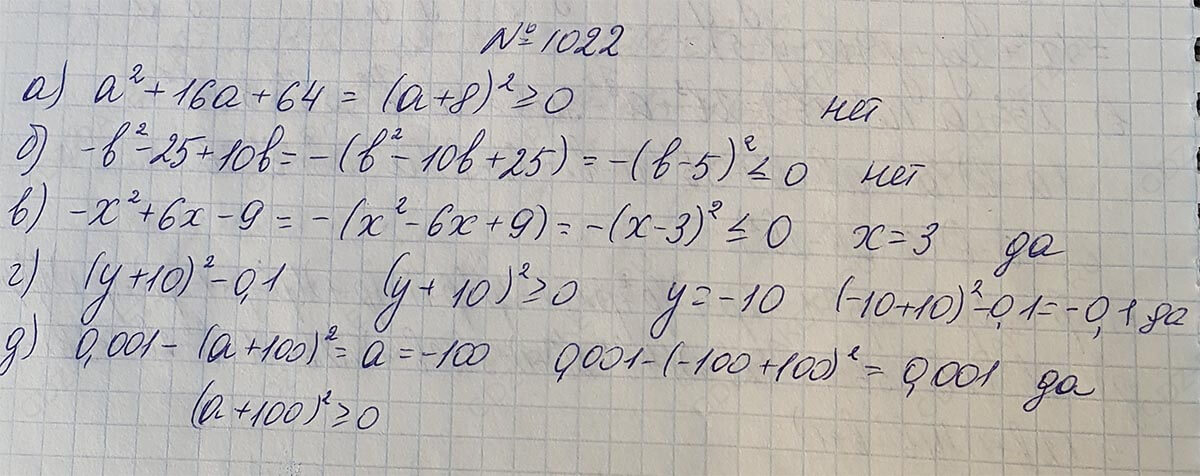 № 1022
а) a² + 16a + 64 = (a + 8)² ≥ 0 нет
б) -b² - 25 + 10b = -(b² - 10b + 25) = -(b - 5)² ≤ 0 нет
в) -x² + 6x - 9 = -(x² - 6x + 9) = -(x - 3)² ≤ 0 x = 3 да
г) (y + 10)² - 0,1 (y + 10)² ≥ 0 y = -10 (-10 + 10)² - 0,1 = -0,1 да
д) 0,001 - (a + 100)² = a = -100 0,001 - (-100 + 100)² = 0,001 да
(a + 100)² ≥ 0